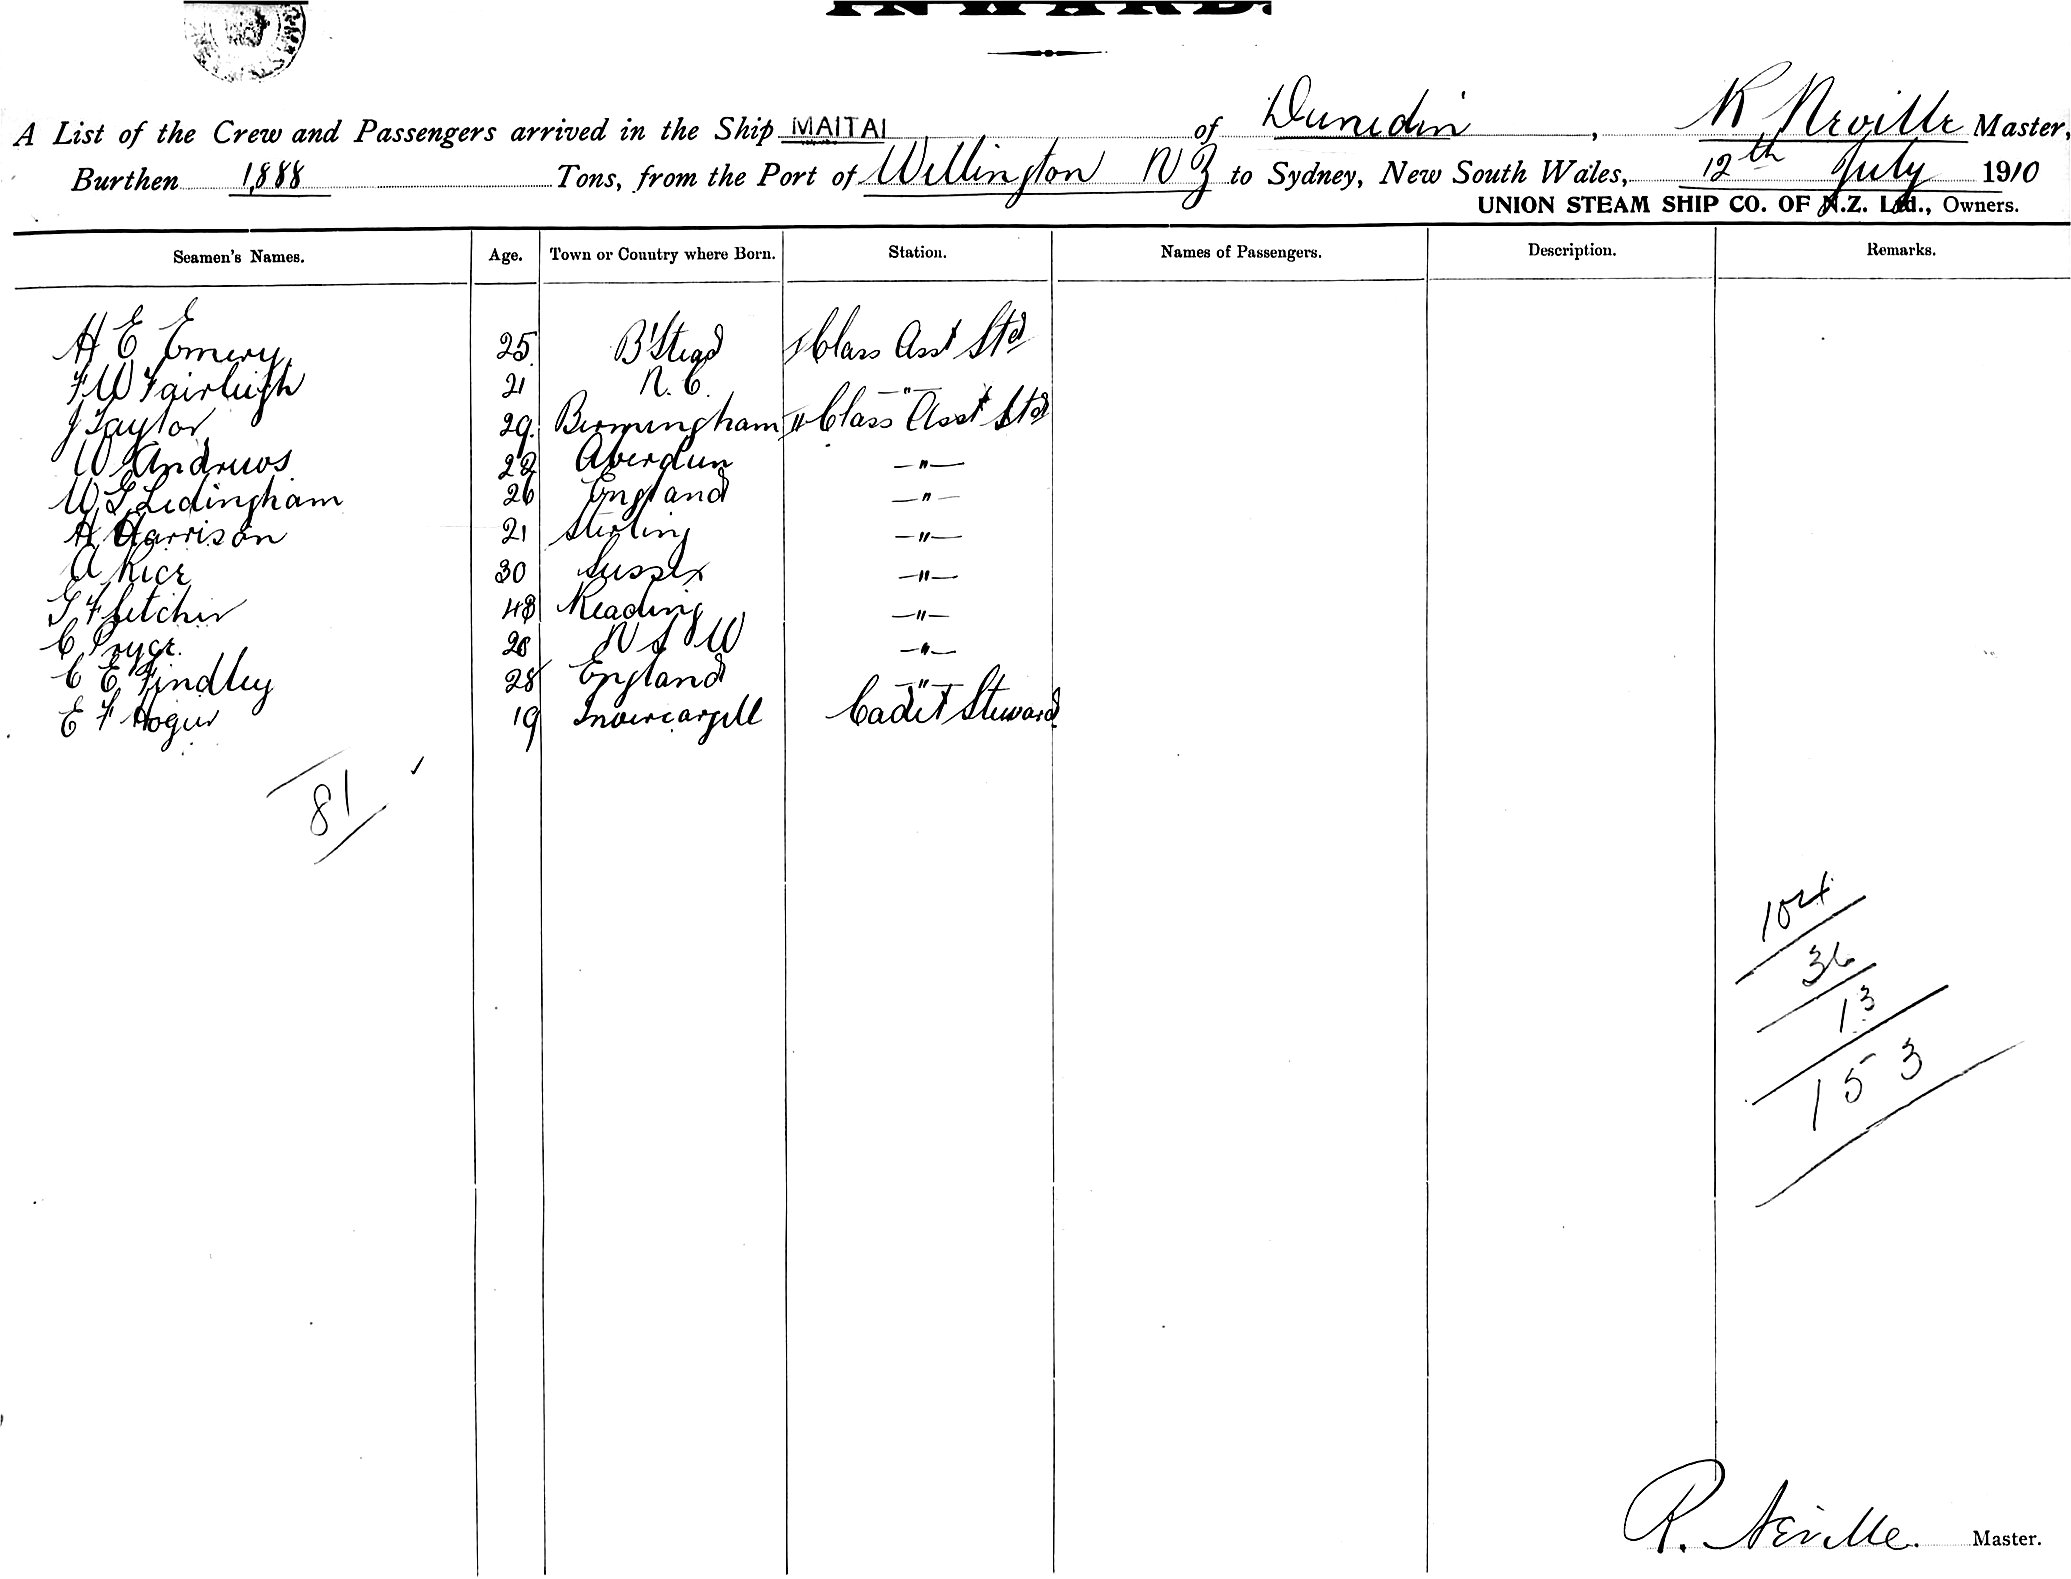 INWARD.
A List of the Crew and Passengers arrived in the Ship MAITAI of Dunedin, R Neville Master,
Burthen 1,888 Tons, from the Port of Wellington NZ to Sydney, New South Wales, 12th July 1910
UNION STEAM SHIP CO. OF N.Z. Ltd., Owners.
Seamen's Names. Age. Town or Country where Born. Station. Names of Passengers. Description. Remarks.
H E Emery 25 B'Stead I Class Asst Std
F W Fairleigh 21 N.C. —"—
J Taylor 29. Birmingham II Class Asst Std
W Andrews 22 Aberdeen —"—
W G Ledingham 26 England —"—
H Harrison 21 Sterling —"—
A Rice 30 Sussex —"—
G Fletcher 43 Reading —"—
C Pryce. 28 N S W —"—
C E Findley 28 England —"—
E F Hogue 19 Invercargill Cadet Steward
81 ✓
104
36
13
153
R. Neville. Master.